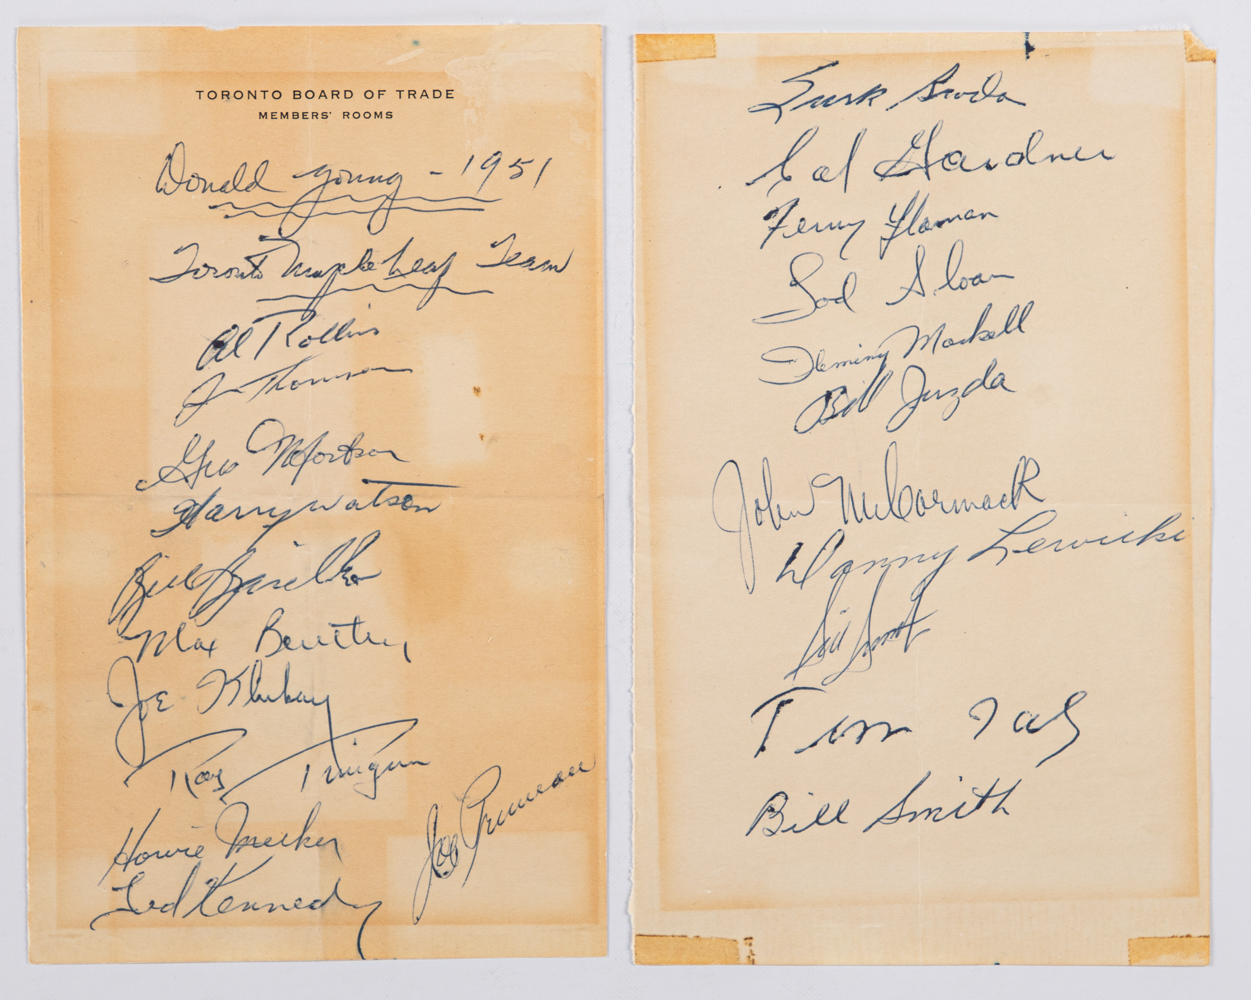 TORONTO BOARD OF TRADE
MEMBERS' ROOMS
Donald Young - 1951
Toronto Maple Leaf Team
Al Rollins
J Thomson
Gus Mortson
Harry Watson
Bill Barilko
Max Bentley
Joe Klukay
Ray Timgren
Howie Meeker
Ted Kennedy
Joe Primeau
Turk Broda
Cal Gardner
Ferny Flaman
Tod Sloan
Fleming Mackell
Bill Juzda
John McCormack
Danny Lewicki
Sid Smith
Tim Daly
Bill Smith